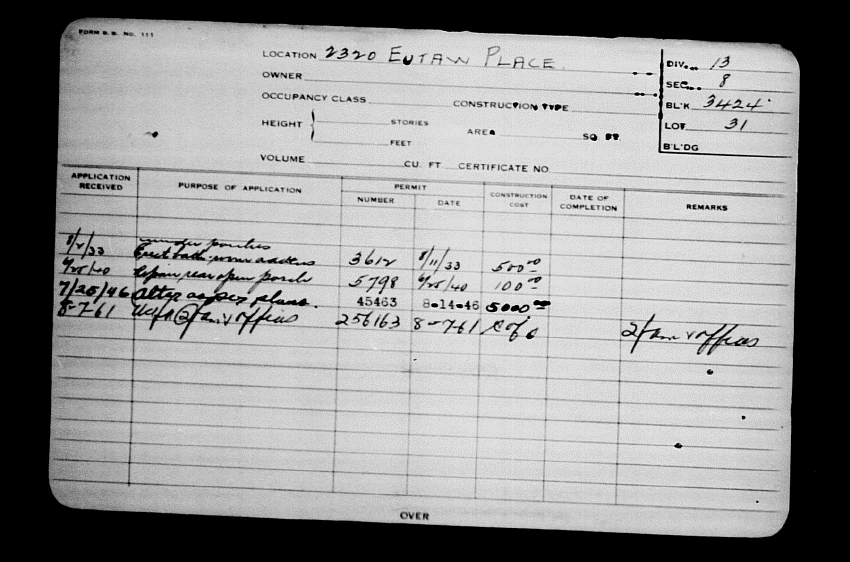 FORM B. B. NO. 111
LOCATION 2320 EUTAW PLACE.
DIV. 13
OWNER
SEC. 8
OCCUPANCY CLASS CONSTRUCTION TYPE
BL'K 3424
HEIGHT STORIES AREA SQ FT.
LOT 31
FEET
B'L'DG
VOLUME CU. FT. CERTIFICATE NO
APPLICATION RECEIVED PURPOSE OF APPLICATION PERMIT NUMBER DATE CONSTRUCTION COST DATE OF COMPLETION REMARKS
porches
/33 Erect bath room 3612 8/11/33 500.00
6/25/40 Repair rear open porch 5798 6/25/40 100.00
7/25/46 Alter as per plans. 45463 8-14-46 5000.00
8-7-61 Use 2 fam & offices 256163 8-7-61 C of O 2 fam & offices
OVER